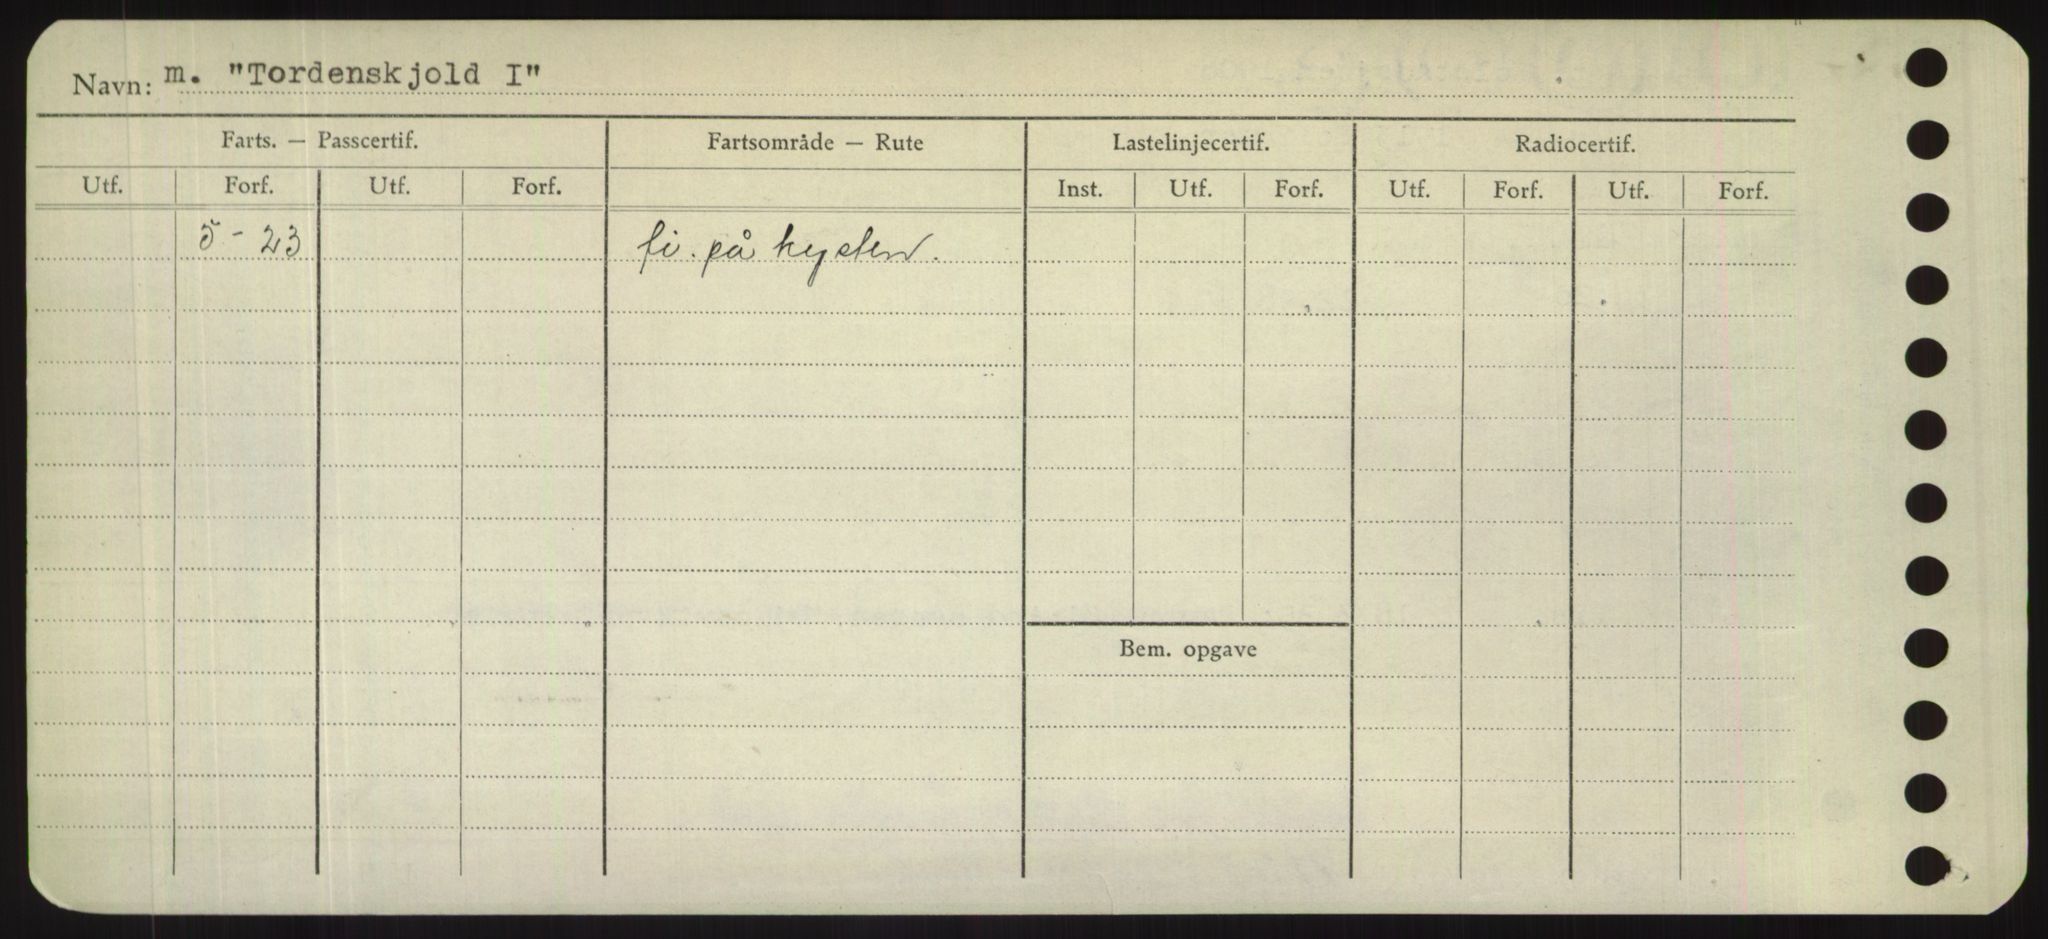 Navn: m. "Tordenskjold I"
Farts. — Passcertif. Fartsområde — Rute Lastelinjecertif. Radiocertif.
Utf. Forf. Utf. Forf. Inst. Utf. Forf. Utf. Forf. Utf. Forf.
5 - 23 fi. på kysten.
Bem. opgave